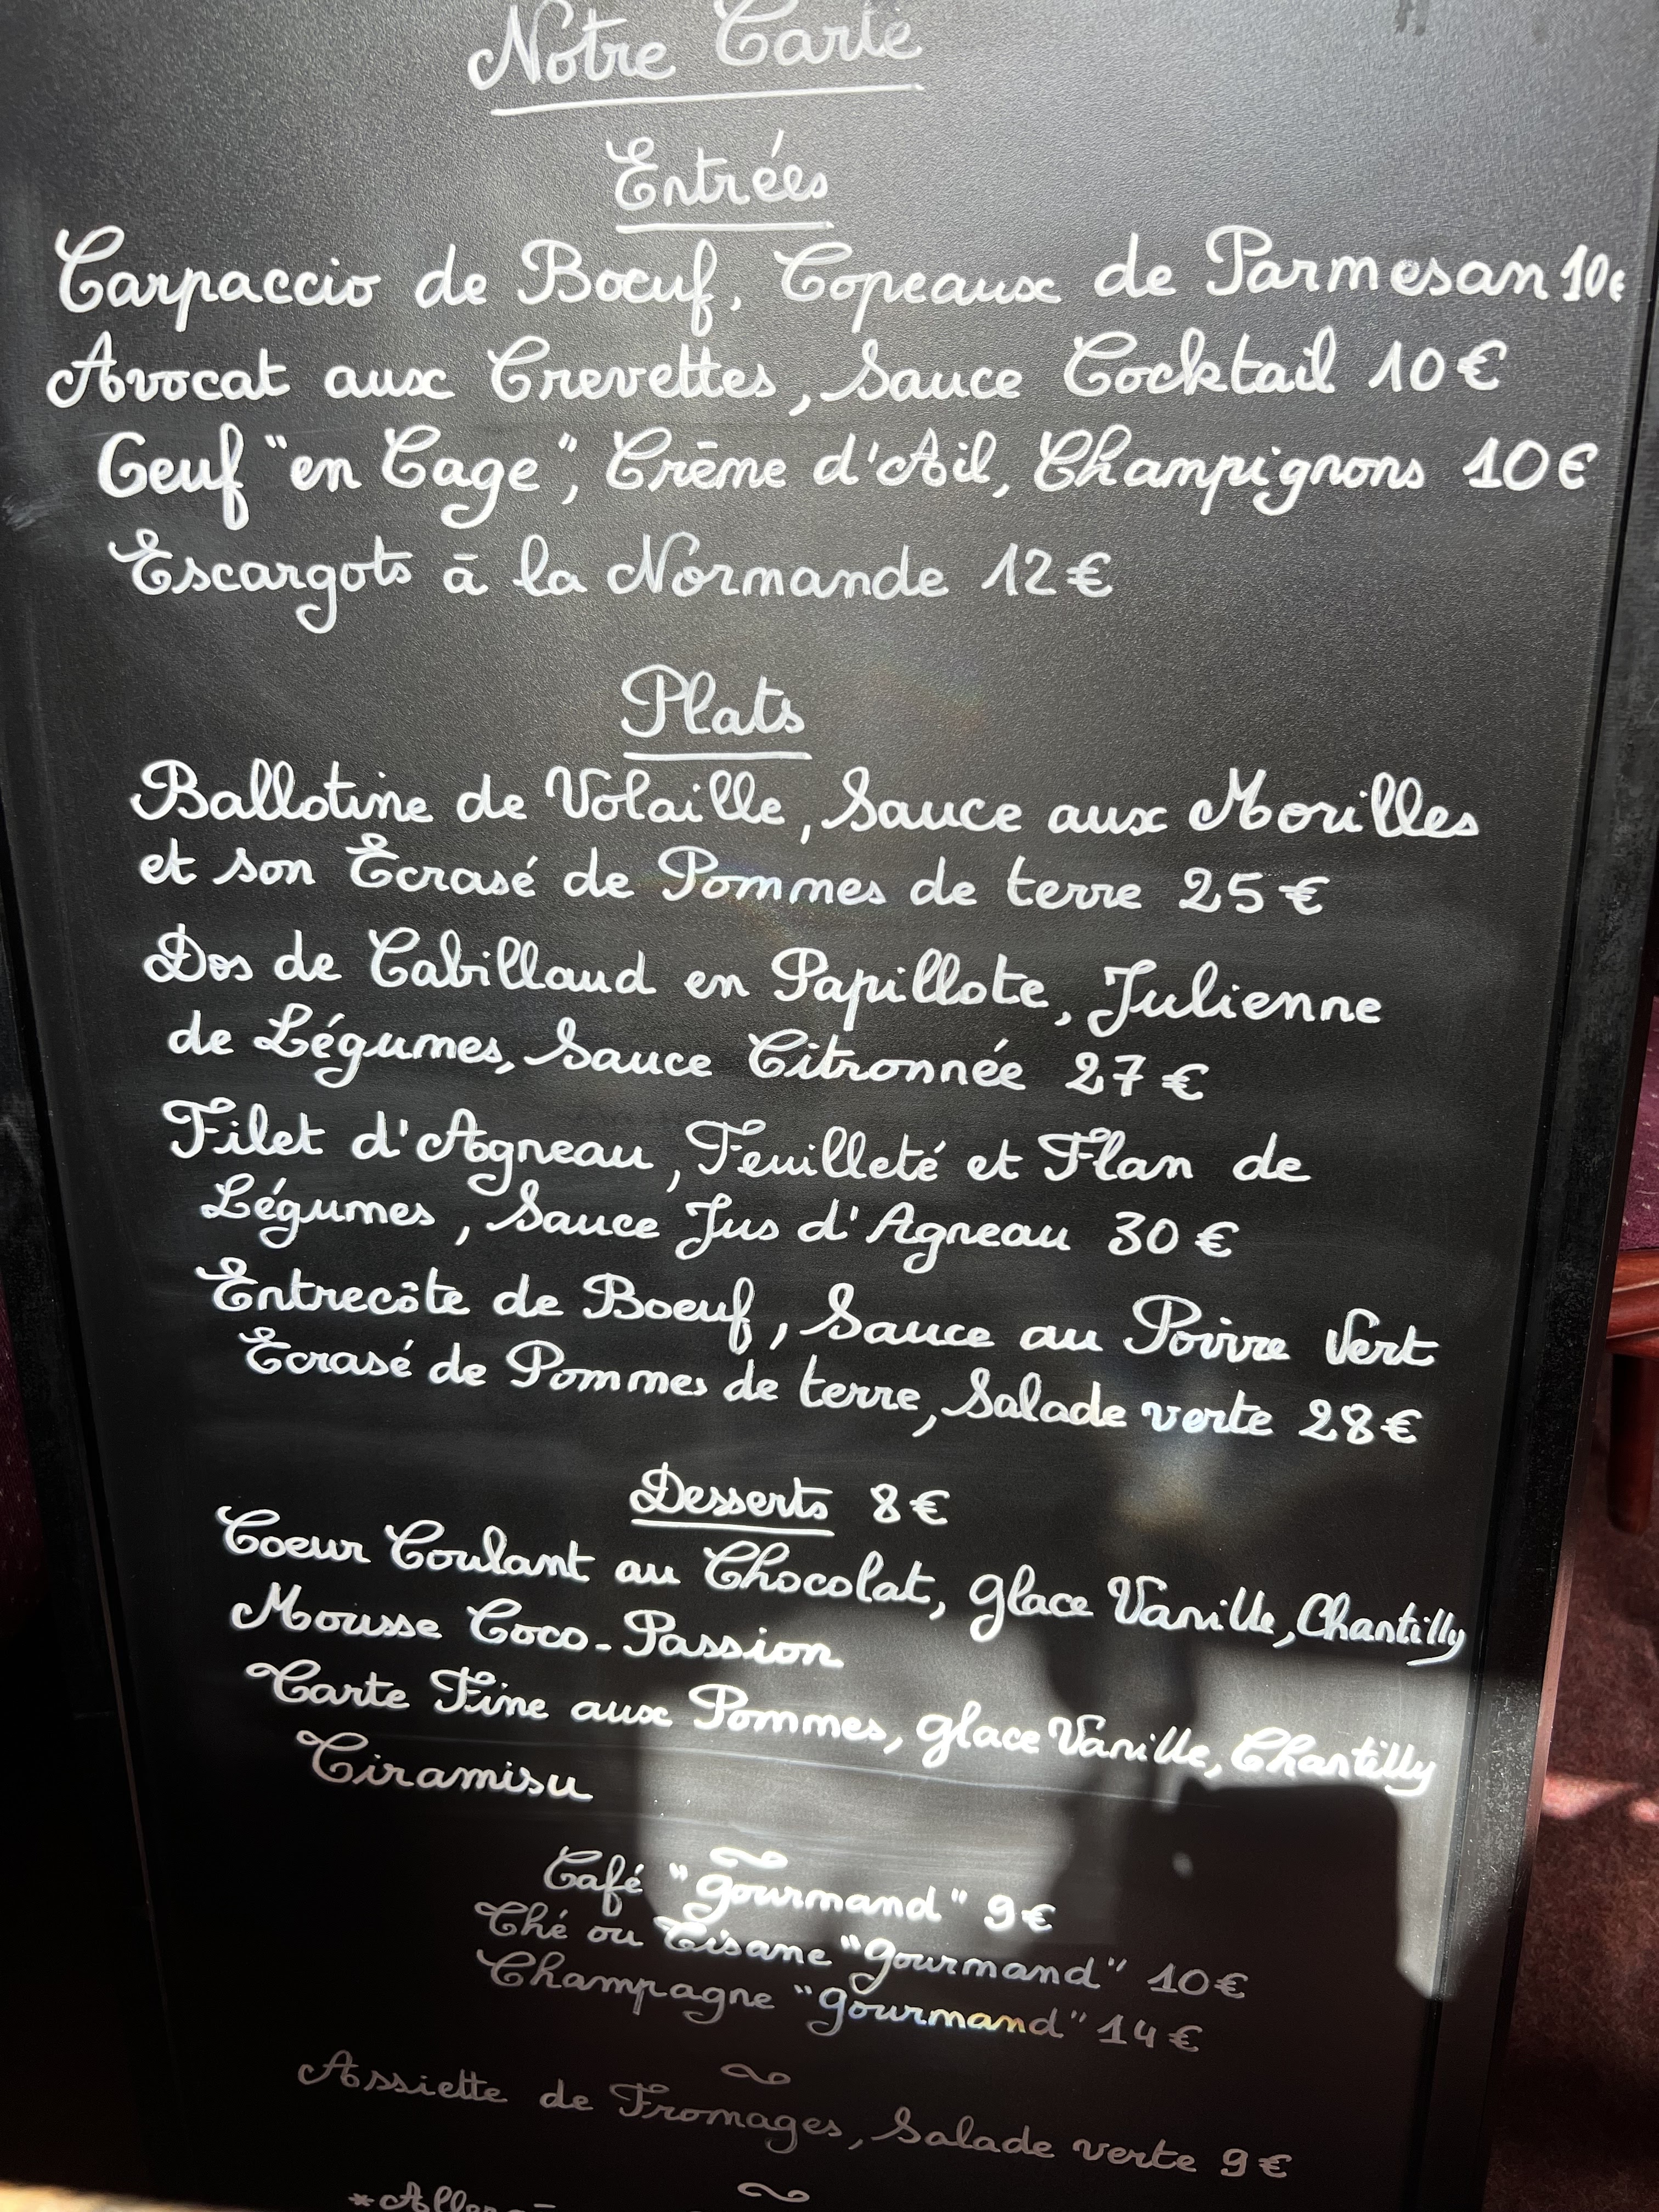 Notre Carte
Entrées
Carpaccio de Boeuf, Copeaux de Parmesan 10€
Avocat aux Crevettes, Sauce Cocktail 10€
Oeuf "en Cage", Crème d'Ail, Champignons 10€
Escargots à la Normande 12€
Plats
Ballotine de Volaille, Sauce aux Morilles
et son Ecrasé de Pommes de terre 25€
Dos de Cabillaud en Papillote, Julienne
de Légumes, Sauce Citronnée 27€
Filet d'Agneau, Feuilleté et Flan de
Légumes, Sauce Jus d'Agneau 30€
Entrecôte de Boeuf, Sauce au Poivre Vert
Ecrasé de Pommes de terre, Salade verte 28€
Desserts 8€
Coeur Coulant au Chocolat, glace Vanille, Chantilly
Mousse Coco-Passion
Tarte Fine aux Pommes, glace Vanille, Chantilly
Tiramisu
Café "gourmand" 9€
Thé ou Tisane "gourmand" 10€
Champagne "gourmand" 14€
Assiette de Fromages, Salade verte 9€